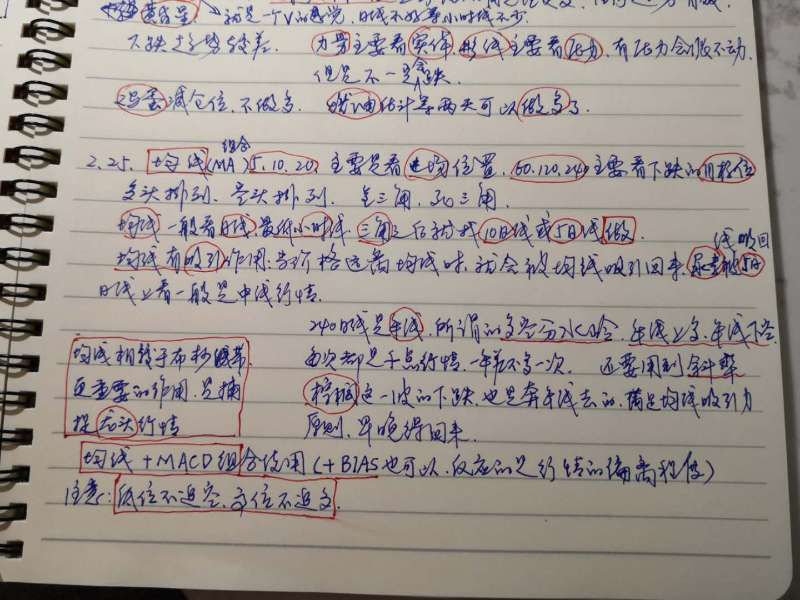 就是一个V的感觉,日线不好看小时线不少
下跌趋势较差. 力量主要看实体,影线主要看压力,有压力会做不动.
但是不一定会跌.
鸡蛋减仓位,不做多. 燃油估计等两天可以做多了.
组合
2.25. 均线(MA)5.10.20 主要是看进均位置,60.120.240主要看下跌的目标位
多头排列.空头排列. 金三角,死三角.
均线一般看日线,最低小时线.三角之后就找10日线或5日线做. 线收回
均线有吸引作用:当价格远离均线时,就会被均线吸引回来. 5日
日线上看一般是中线行情.
240日线是年线,所谓的多空分水岭,年线上多.年线下空.
均线相较于布林带 每次都是千点行情,一年差不多一次. 还要用到斜率
更重要的作用,是捕 棕榈这一波的下跌,也是奔年线去的,满足均线吸引力
捉龙头行情 原则,早晚得回来.
均线+MACD组合使用(+BIAS也可以,反应的是行情的偏离程度)
注意:低位不追空,高位不追多.